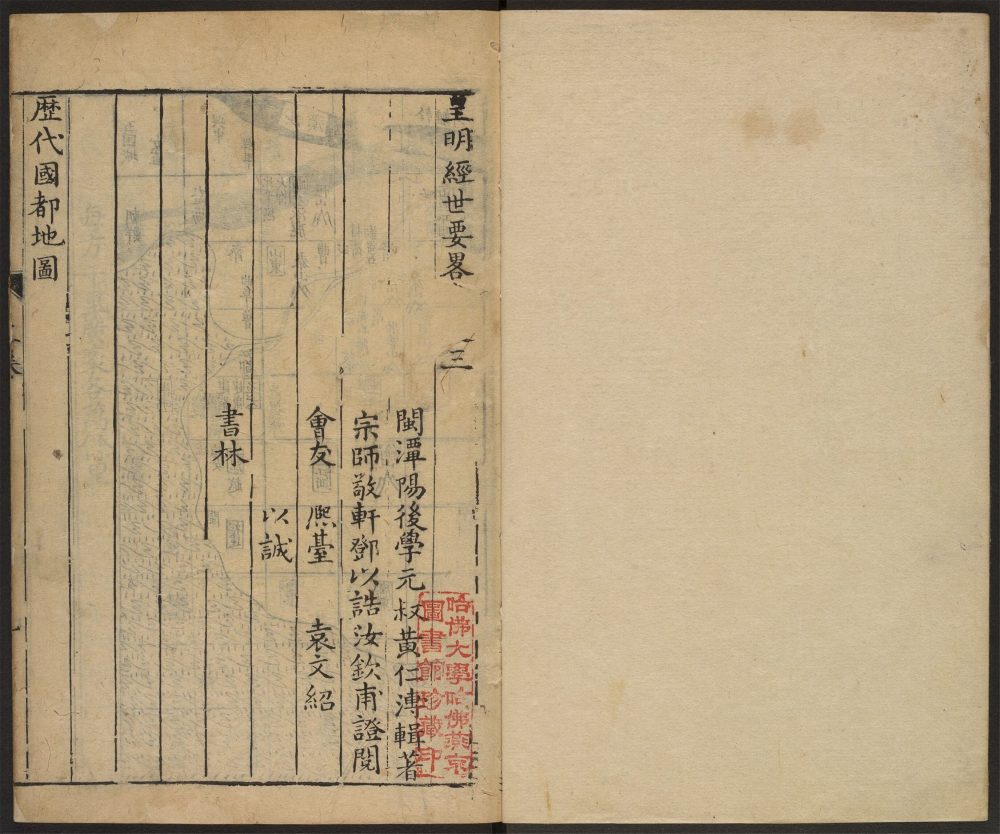 皇明經世要畧 三
閩潭陽後學元叔黃仁溥輯著
宗師敬軒鄧以誥汝欽甫證閱
會友 熈臺 袁文紹
以誠
書林
歷代國都地圖
哈佛大學哈佛燕京
圖書館珍藏印